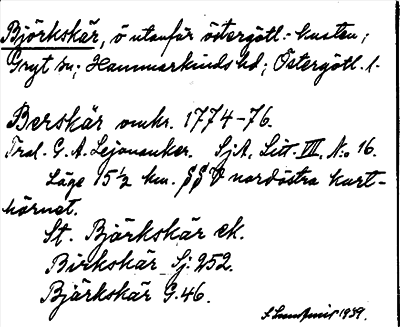 Björkskär, ö utanför östergötl.-kusten;
Gryt sn; Hammarkinds hd; Östergötl. l.
Berskär omkr. 1774-76.
Trol. G. A. Lejonanker. SjA, Litt. III, No 16.
Läge 15½ km. V nordöstra kart-
hörnet.
St. Bjärkskär ek.
Birkskär Sj. 252.
Bjärkskär G. 46.
1939.